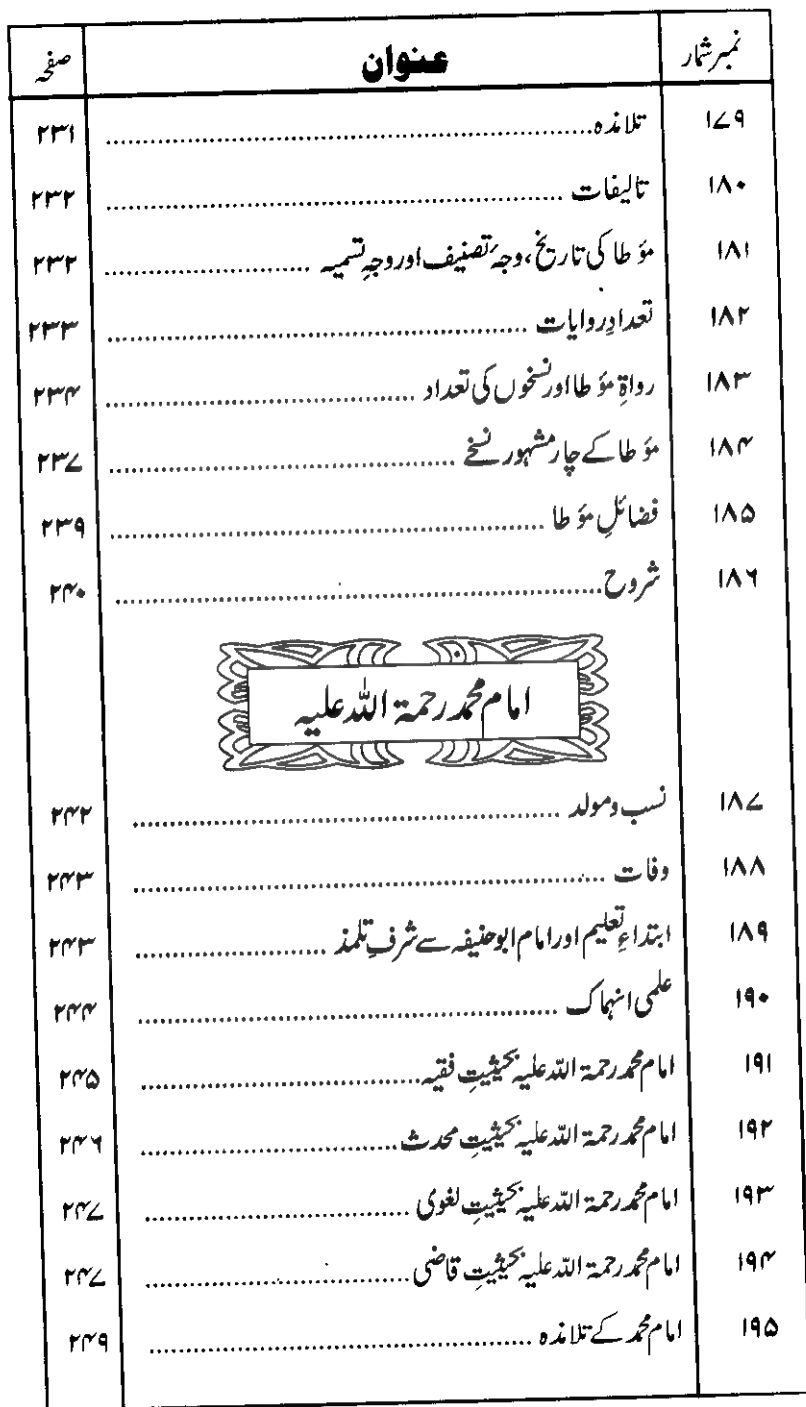 نمبر شمار عنوان صفحہ
۱۷۹ تلامذہ ........ ۲۳۱
۱۸۰ تالیفات ........ ۲۳۲
۱۸۱ مؤطا کی تاریخ، وجۂ تصنیف اور وجہِ تسمیہ ........ ۲۳۲
۱۸۲ تعدادِ روایات ........ ۲۳۳
۱۸۳ رواۃِ مؤطا اور نسخوں کی تعداد ........ ۲۳۴
۱۸۴ مؤطا کے چار مشہور نسخے ........ ۲۳۷
۱۸۵ فضائلِ مؤطا ........ ۲۳۹
۱۸۶ شروح ........ ۲۴۰
امام محمد رحمۃ اللہ علیہ
۱۸۷ نسب و مولد ........ ۲۴۲
۱۸۸ وفات ........ ۲۴۳
۱۸۹ ابتداءِ تعلیم اور امام ابوحنیفہ سے شرفِ تلمذ ........ ۲۴۳
۱۹۰ علمی انہماک ........ ۲۴۴
۱۹۱ امام محمد رحمۃ اللہ علیہ بحیثیتِ فقیہ ........ ۲۴۵
۱۹۲ امام محمد رحمۃ اللہ علیہ بحیثیتِ محدث ........ ۲۴۶
۱۹۳ امام محمد رحمۃ اللہ علیہ بحیثیتِ لغوی ........ ۲۴۷
۱۹۴ امام محمد رحمۃ اللہ علیہ بحیثیتِ قاضی ........ ۲۴۷
۱۹۵ امام محمد کے تلامذہ ........ ۲۴۹